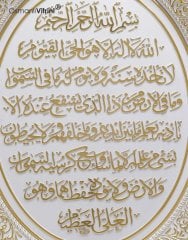 Osmanlı Vitrin
بسم الله الرحمن الرحيم
الله لا اله الا هو الحي القيوم
لا تأخذه سنة ولا نوم له ما في السموات
وما في الارض من ذا الذي يشفع عنده الا
باذنه يعلم ما بين ايديهم وما خلفهم ولا يحيطون
بشئ من علمه الا بما شاء وسع كرسيه السموات
والارض ولا يؤده حفظهما وهو
العلي العظيم